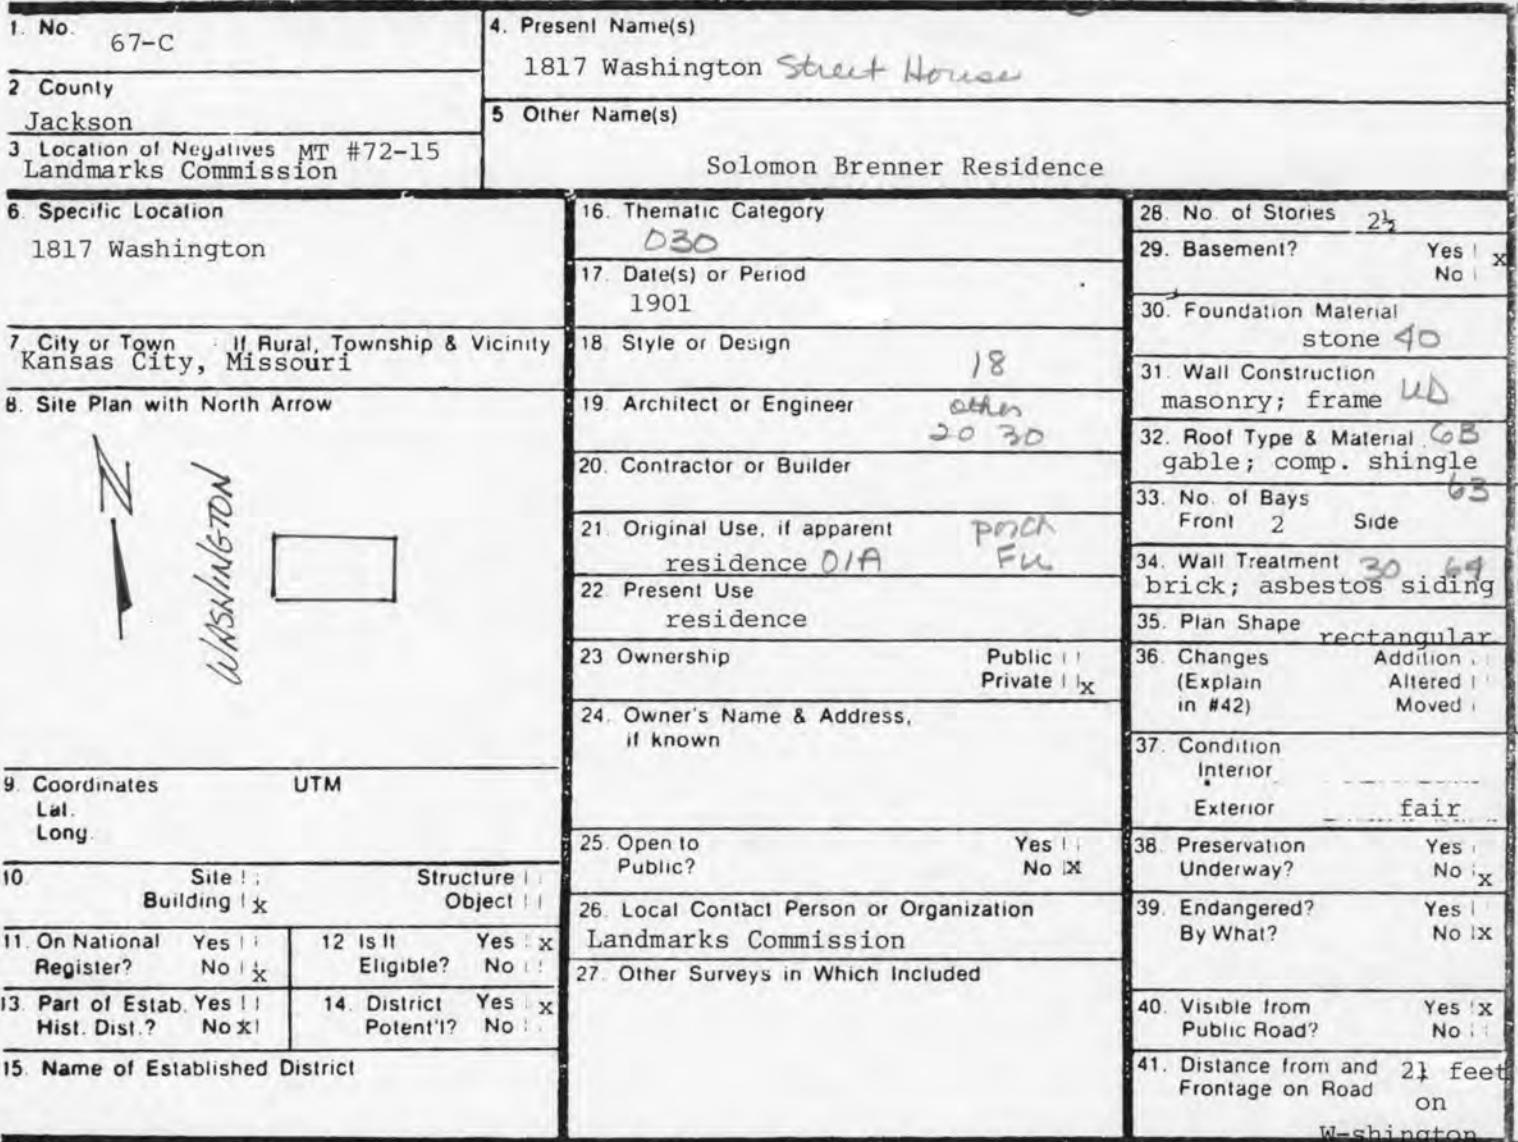 1. No. 67-C
2 County
Jackson
3 Location of Negatives MT #72-15
Landmarks Commission
4. Present Name(s)
1817 Washington Street House
5 Other Name(s)
Solomon Brenner Residence
6. Specific Location
1817 Washington
7. City or Town If Rural, Township & Vicinity
Kansas City, Missouri
8. Site Plan with North Arrow
N
WASHINGTON
9. Coordinates UTM
Lat.
Long.
10. Site Structure
Building x Object
11. On National Yes
Register? No x
12 Is It Yes x
Eligible? No
13. Part of Estab. Yes
Hist. Dist.? No x
14. District Yes x
Potent'l? No
15. Name of Established District
16. Thematic Category
030
17. Date(s) or Period
1901
18. Style or Design
18
19. Architect or Engineer other
20 30
20. Contractor or Builder
21. Original Use, if apparent porch
residence 01A Fu
22. Present Use
residence
23 Ownership Public
Private x
24. Owner's Name & Address,
if known
25. Open to Yes
Public? No x
26. Local Contact Person or Organization
Landmarks Commission
27. Other Surveys in Which Included
28. No. of Stories 2½
29. Basement? Yes x
No
30. Foundation Material
stone 40
31. Wall Construction
masonry; frame UD
32. Roof Type & Material GB
gable; comp. shingle
63
33. No. of Bays
Front 2 Side
34. Wall Treatment 30 64
brick; asbestos siding
35. Plan Shape rectangular
36. Changes Addition
(Explain Altered
in #42) Moved
37. Condition
Interior
Exterior fair
38. Preservation Yes
Underway? No x
39. Endangered? Yes
By What? No x
40. Visible from Yes x
Public Road? No
41. Distance from and feet
Frontage on Road on
W-shington